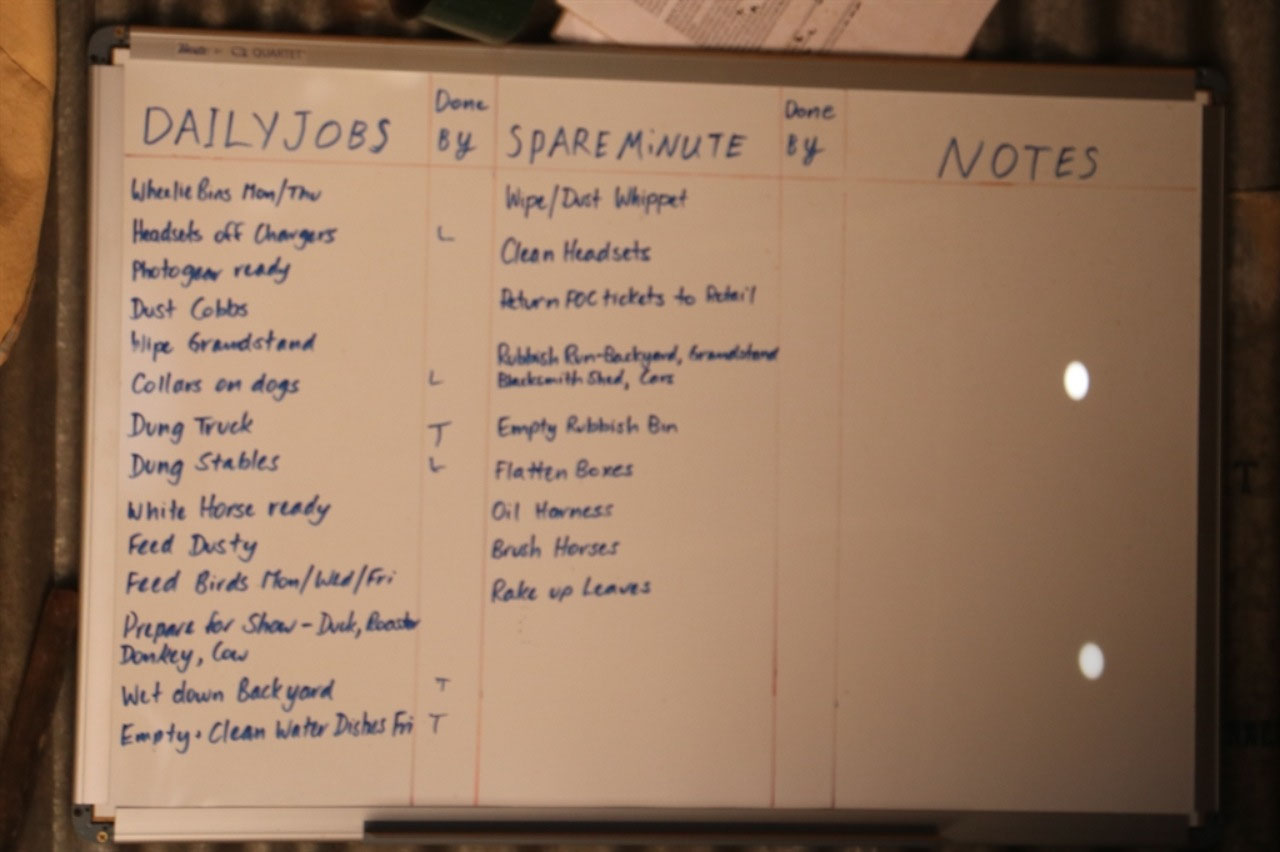 QUARTET
DAILY JOBS
Done
By
SPARE MiNUTE
Done
By
NOTES
Wheelie Bins Mon/Thu
Headsets off Chargers L
Photogear ready
Dust Cobbs
Wipe Grandstand
Collars on dogs L
Dung Truck T
Dung Stables L
White Horse ready
Feed Dusty
Feed Birds Mon/Wed/Fri
Prepare for Show - Duck, Rooster
Donkey, Cow
Wet down Backyard T
Empty + Clean Water Dishes Fri T
Wipe/Dust Whippet
Clean Headsets
Return FOC tickets to Retail
Rubbish Run - Backyard, Grandstand
Blacksmith Shed, Cars
Empty Rubbish Bin
Flatten Boxes
Oil Harness
Brush Horses
Rake up Leaves